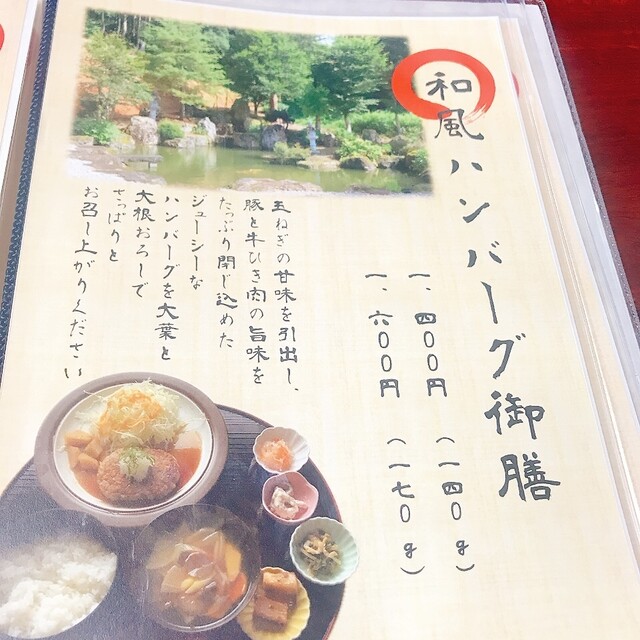 和風ハンバーグ御膳
一、四〇〇円（一四〇g）
一、六〇〇円（一七〇g）
玉ねぎの甘味を引出し、
豚と牛ひき肉の旨味を
たっぷり閉じ込めた
ジューシーな
ハンバーグを大葉と
大根おろしで
さっぱりと
お召し上がりください